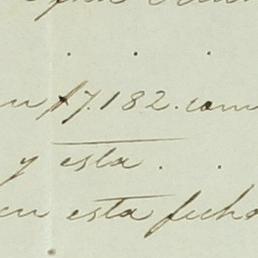 . . .
en $7.182. com
y esta . .
en esta fecha